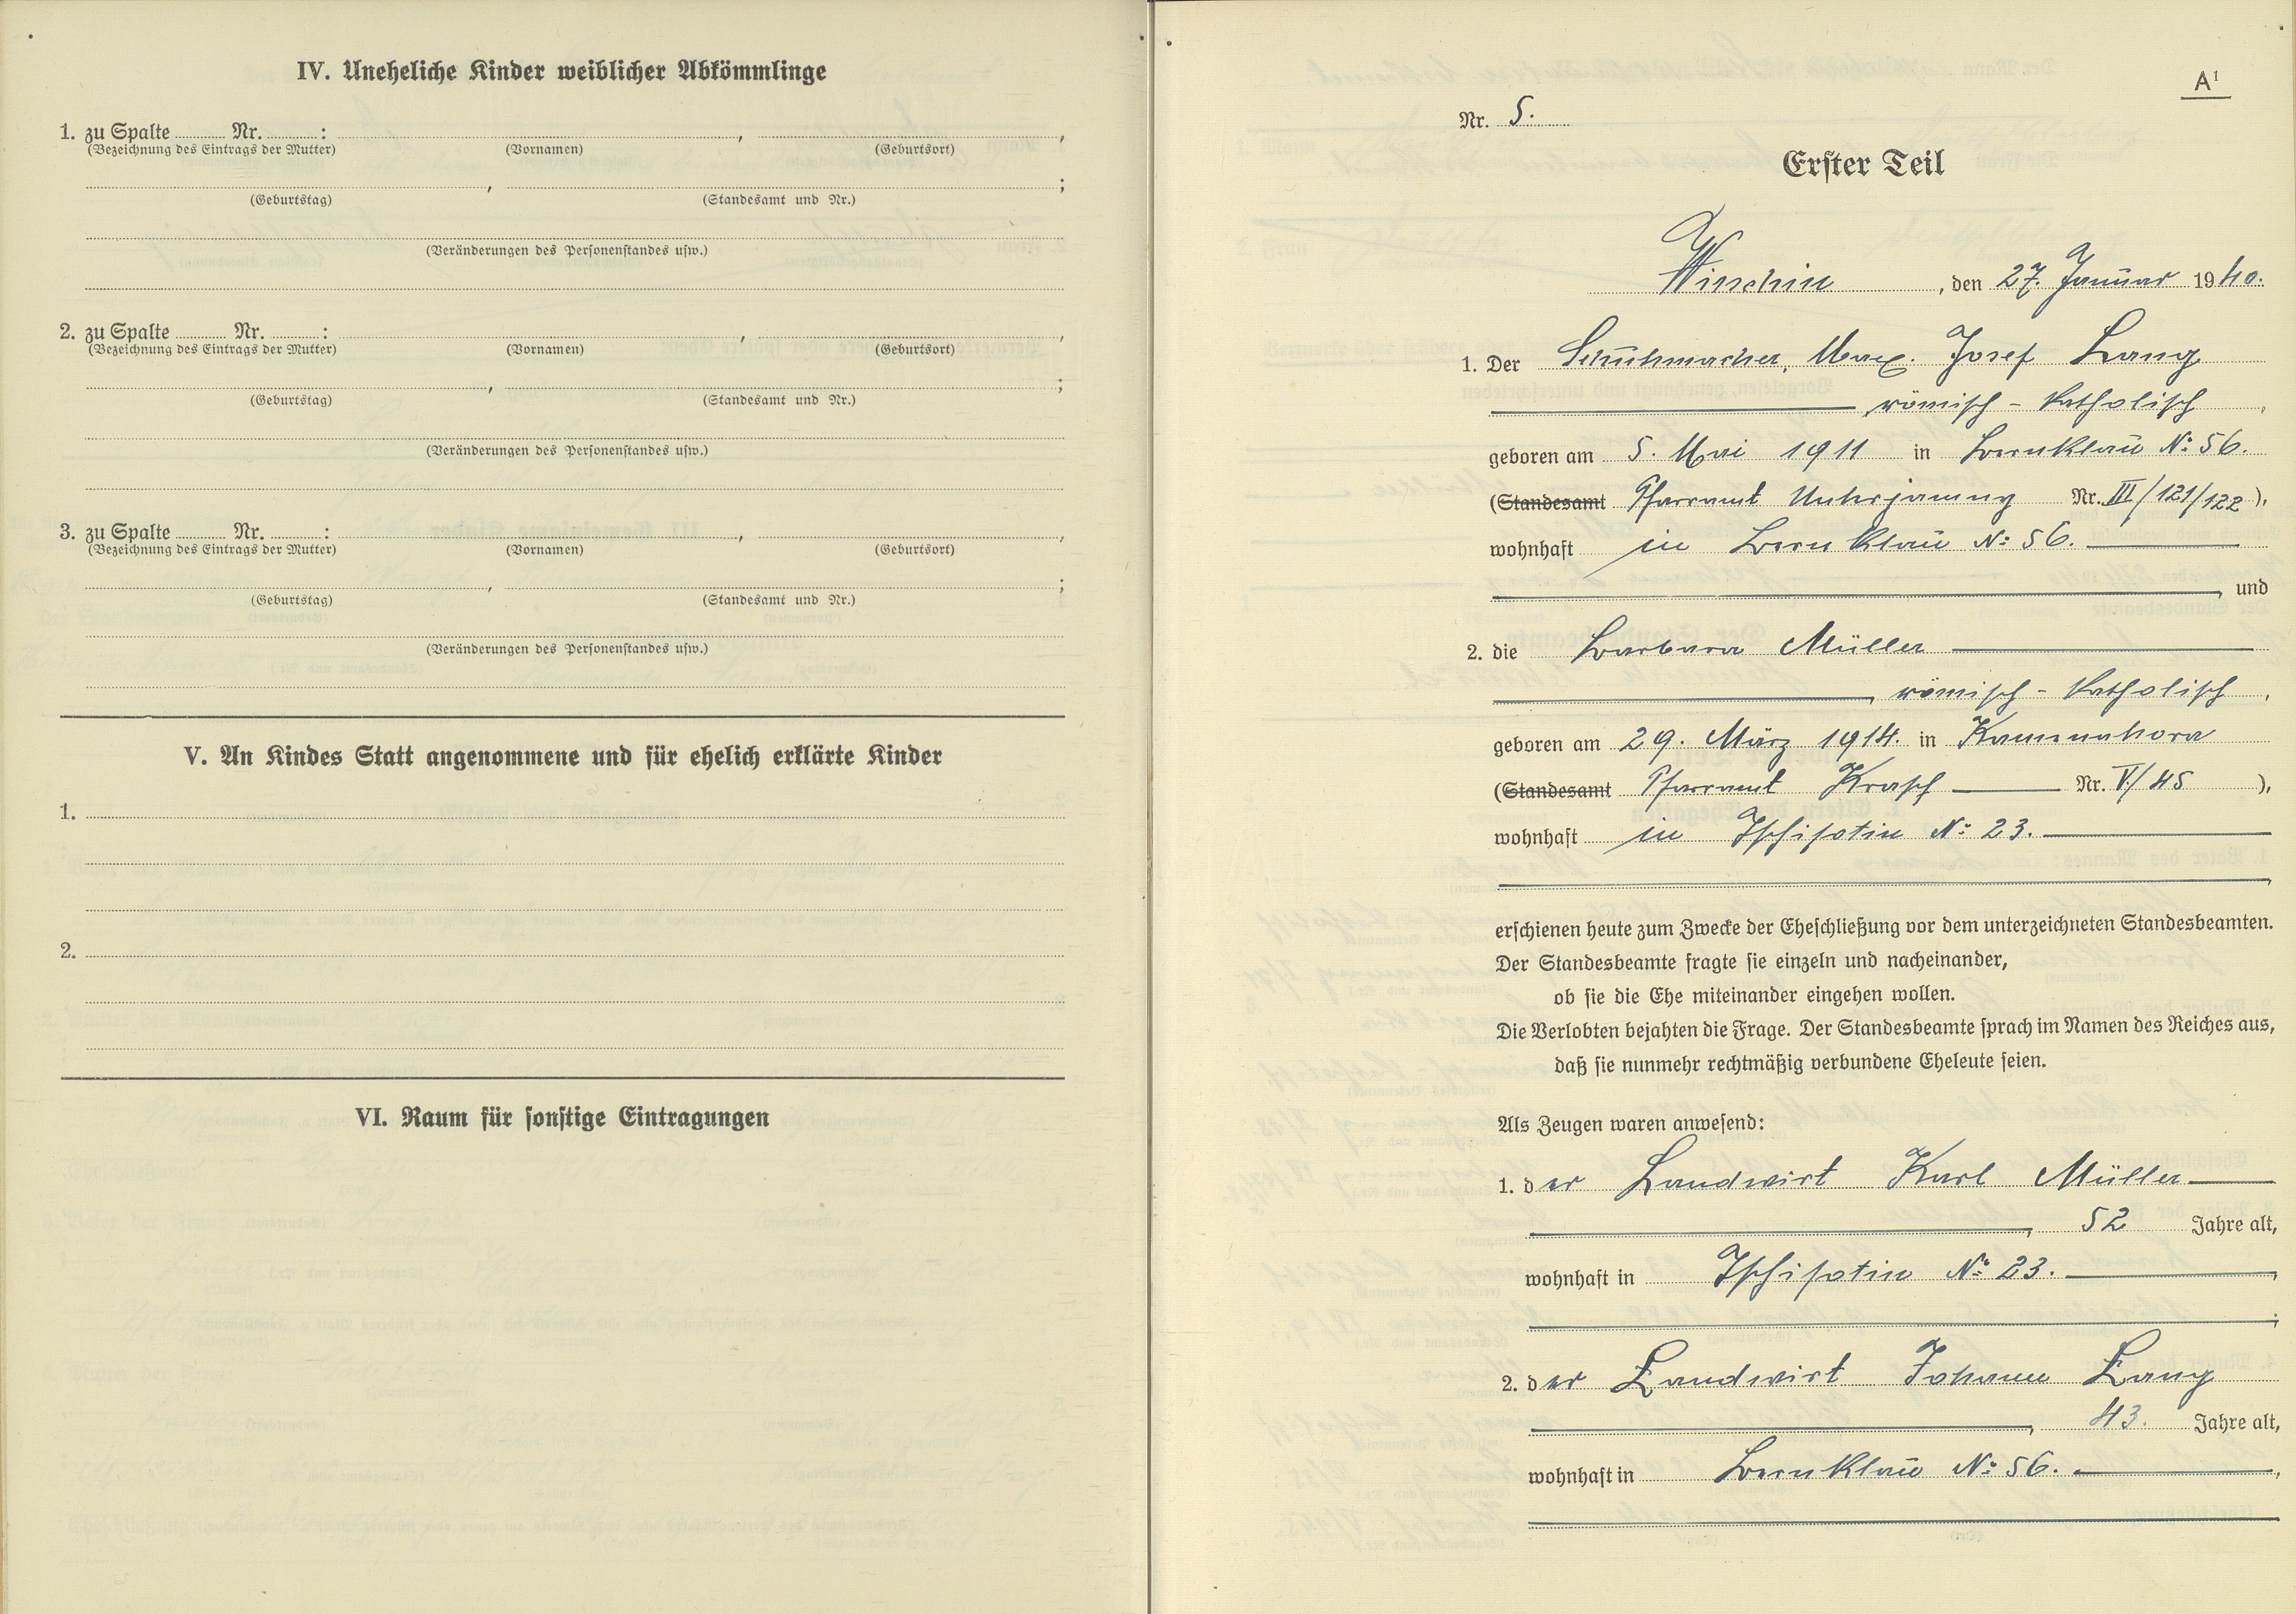 IV. Uneheliche Kinder weiblicher Abkömmlinge
1. zu Spalte ........ Nr. ........ : ,  ,
(Bezeichnung des Eintrags der Mutter) (Vornamen) (Geburtsort)
, ;
(Geburtstag) (Standesamt und Nr.)
(Veränderungen des Personenstandes usw.)
2. zu Spalte ........ Nr. ........ : ,  ,
(Bezeichnung des Eintrags der Mutter) (Vornamen) (Geburtsort)
, ;
(Geburtstag) (Standesamt und Nr.)
(Veränderungen des Personenstandes usw.)
3. zu Spalte ........ Nr. ........ : ,  ,
(Bezeichnung des Eintrags der Mutter) (Vornamen) (Geburtsort)
, ;
(Geburtstag) (Standesamt und Nr.)
(Veränderungen des Personenstandes usw.)
V. An Kindes Statt angenommene und für ehelich erklärte Kinder
1.
2.
VI. Raum für sonstige Eintragungen
A¹
Nr. 5.
Erster Teil
Wirschin, den 27. Januar 1940.
1. Der Schuhmacher, Max Josef Lang
römisch-katholisch,
geboren am 5. Mai 1911 in Bernklau N° 56.
(Standesamt Pfarramt Unterjamny Nr. III/121/122),
wohnhaft in Bernklau N° 56.
, und
2. die Barbara Müller
, römisch-katholisch,
geboren am 29. März 1914. in Kamenahora
(Standesamt Pfarramt Krasch Nr. V./45),
wohnhaft in Tschisotin N° 23.
,
erschienen heute zum Zwecke der Eheschließung vor dem unterzeichneten Standesbeamten.
Der Standesbeamte fragte sie einzeln und nacheinander,
ob sie die Ehe miteinander eingehen wollen.
Die Verlobten bejahten die Frage. Der Standesbeamte sprach im Namen des Reiches aus,
daß sie nunmehr rechtmäßig verbundene Eheleute seien.
Als Zeugen waren anwesend:
1. der Landwirt Karl Müller
, 52 Jahre alt,
wohnhaft in Tschisotin N° 23.
;
2. der Landwirt Johann Lang
, 43. Jahre alt,
wohnhaft in Bernklau N° 56.